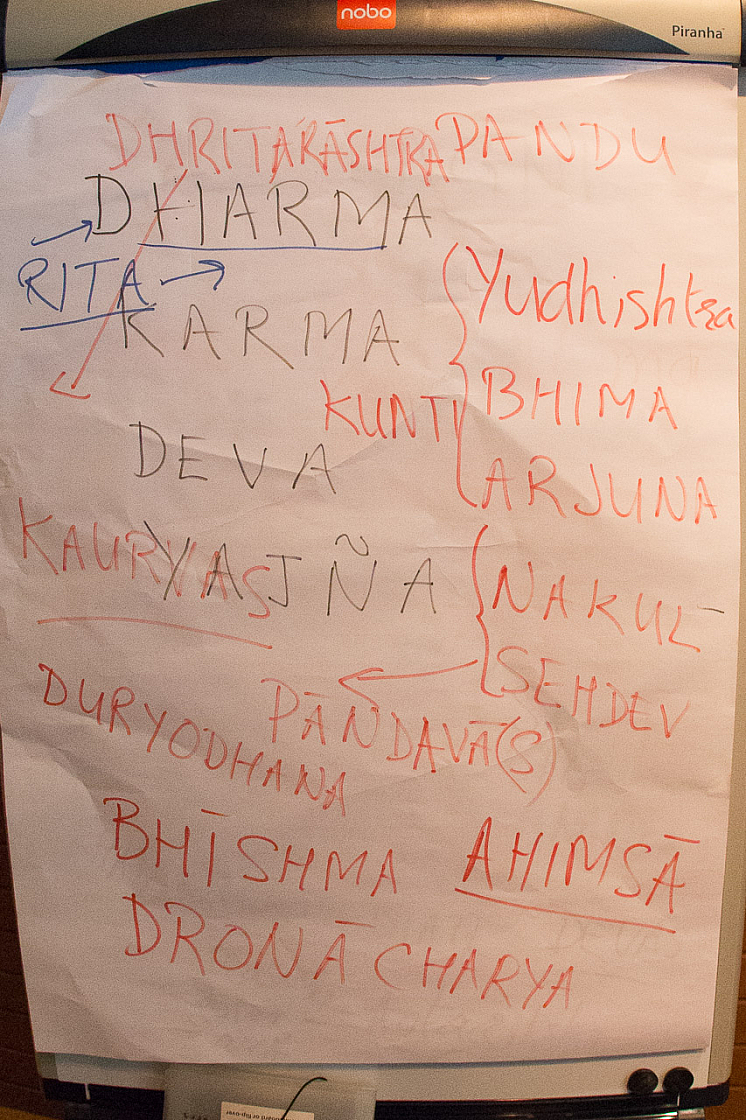 nobo
Piranha
DHRITARĀSHTRA PANDU
DHARMA
RITA
Yudhishtra
KARMA
BHIMA
KUNTI
DEVA
ARJUNA
KAURVAS
YAJÑA
NAKUL
SEHDEV
DURYODHANA
PĀNDAVĀ(S)
BHĪSHMA AHIMSĀ
DRONĀCHARYA